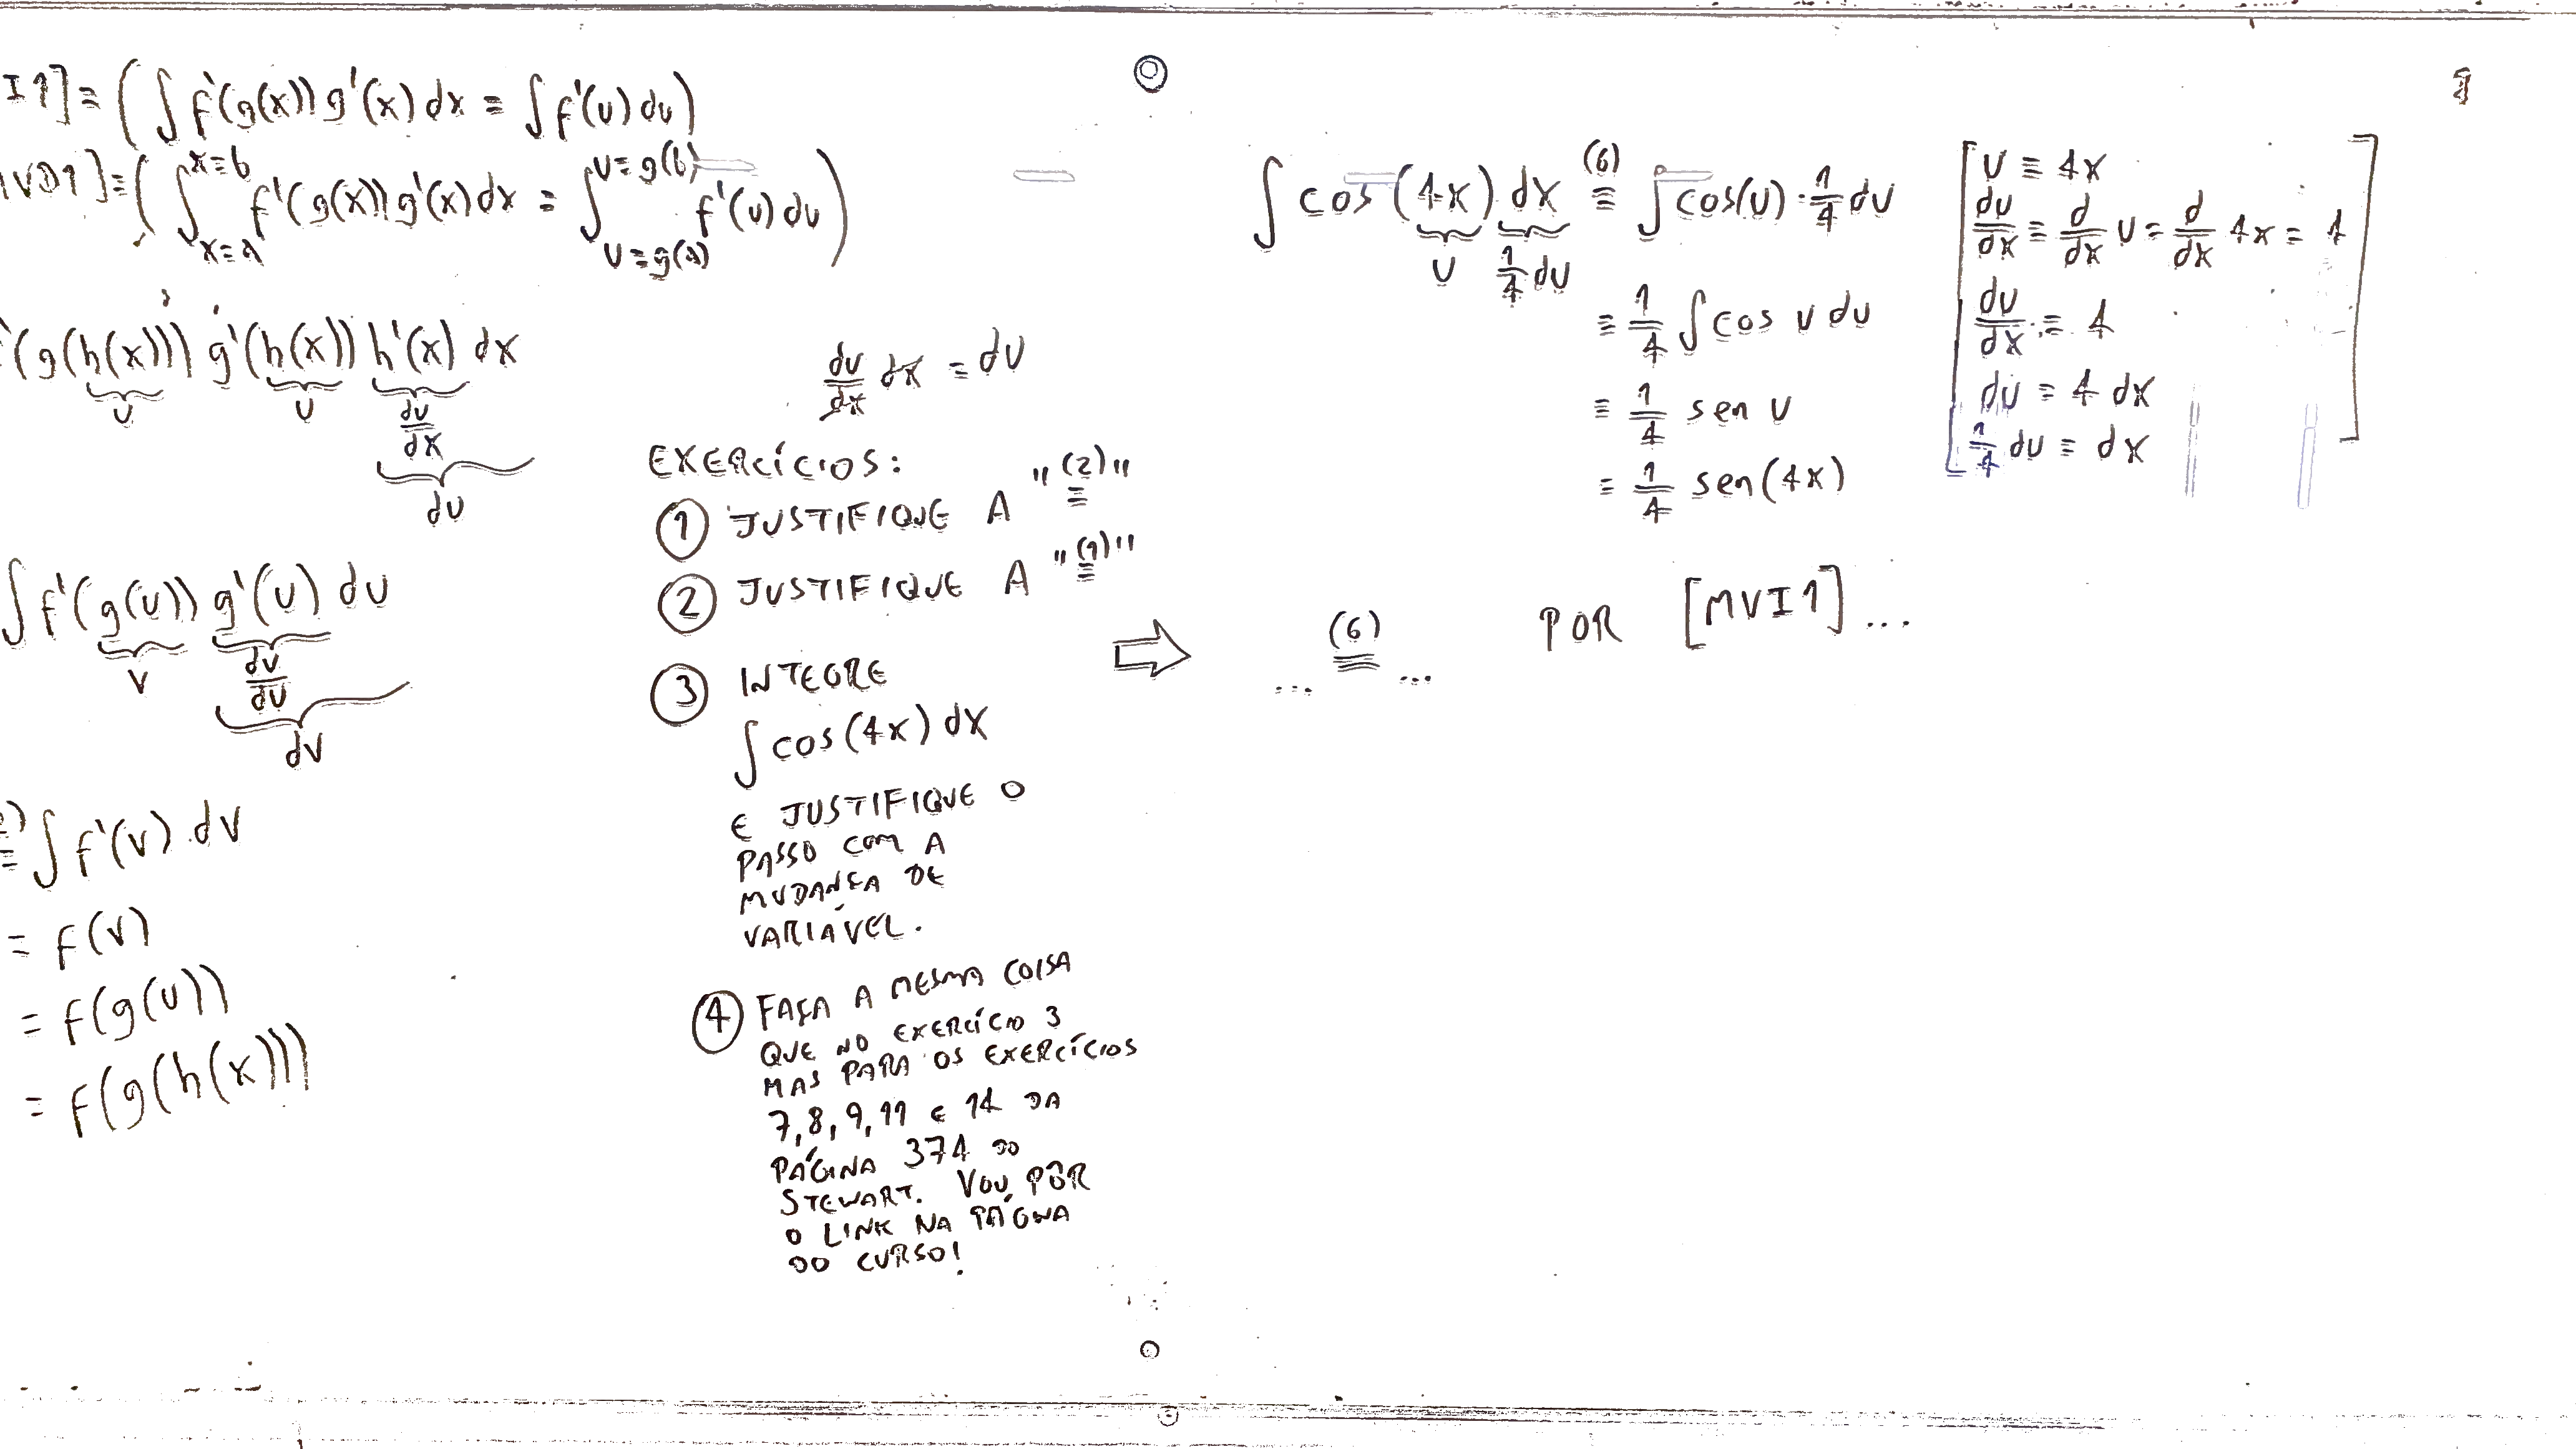 I1] = ( ∫ f'(g(x)) g'(x) dx = ∫ f'(u) du )
VD1] = ( ∫_{x=a}^{x=b} f'(g(x)) g'(x) dx = ∫_{u=g(a)}^{u=g(b)} f'(u) du )
'(g(h(x))) g'(h(x)) h'(x) dx
u u du/dx
du
∫ f'(g(u)) g'(u) du
v dv/du
dv
= ∫ f'(v) dv
= f(v)
= f(g(u))
= f(g(h(x)))
du/dx dx = du
EXERCÍCIOS:
① JUSTIFIQUE A "(2)="
② JUSTIFIQUE A "(1)="
③ INTEGRE
∫ cos(4x) dx
E JUSTIFIQUE O
PASSO COM A
MUDANÇA DE
VARIÁVEL.
④ FAÇA A MESMA COISA
QUE NO EXERCÍCIO 3
MAS PARA OS EXERCÍCIOS
7, 8, 9, 11 E 14 DA
PÁGINA 374 DO
STEWART. VOU PÔR
O LINK NA PÁGINA
DO CURSO!
∫ cos(4x) dx (6)= ∫ cos(u) · 1/4 du
u 1/4 du
= 1/4 ∫ cos u du
= 1/4 sen u
= 1/4 sen(4x)
[ u = 4x
du/dx = d/dx u = d/dx 4x = 4
du/dx = 4
du = 4 dx
1/4 du = dx ]
... (6)= ... POR [MVI1] ...